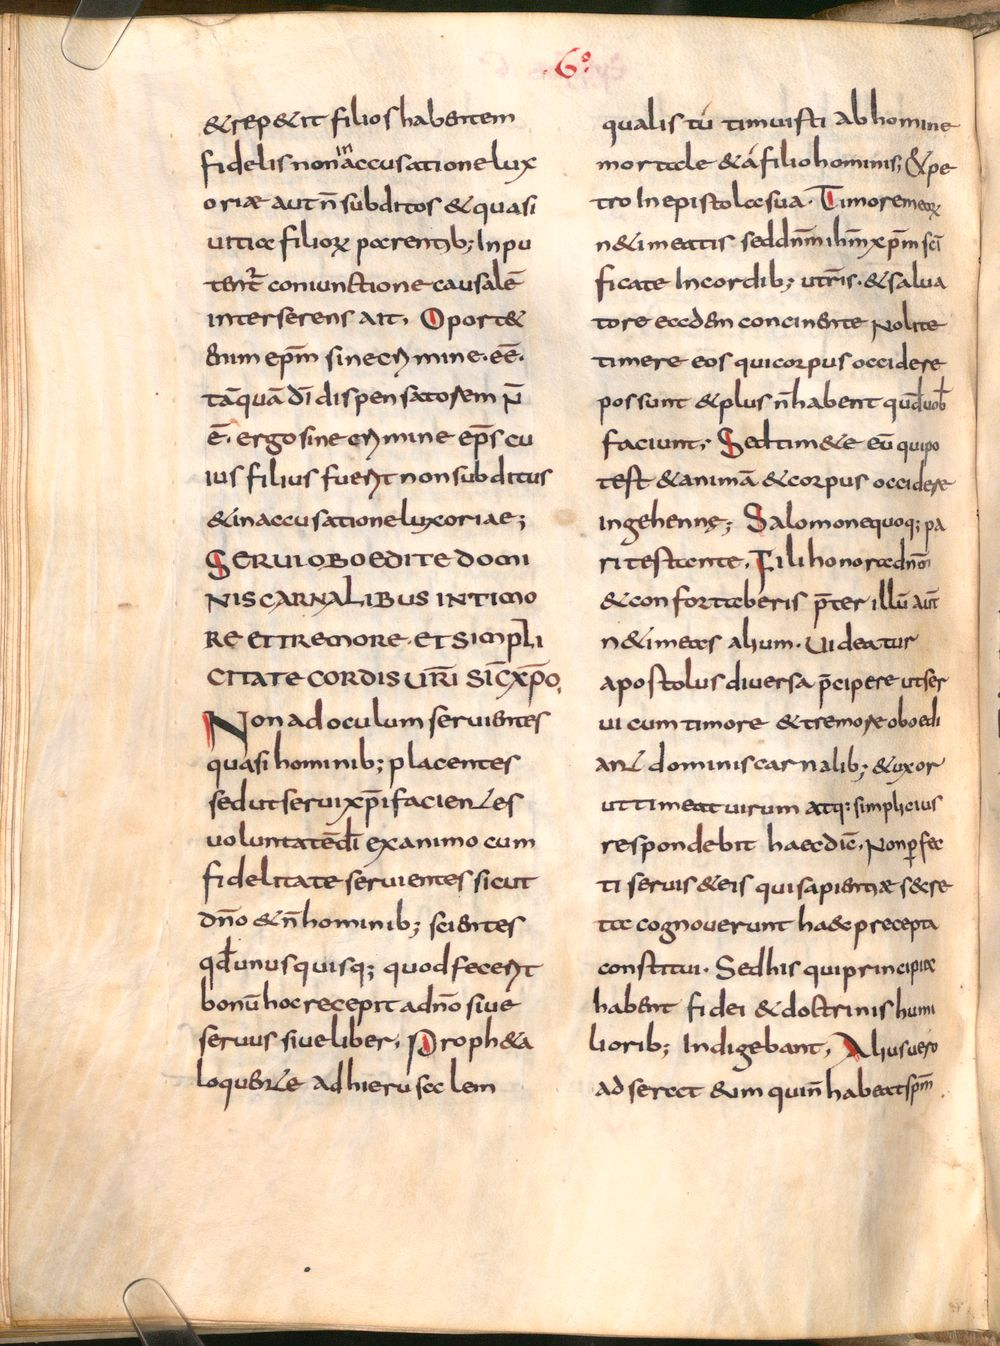 .6°
&rep&it filios habentem
fidelis non in accusatione lux
oriæ aut n̄ subditos & quasi
uitia filioꝝ parentib; Inpu
tent̄ coniunctione causalē
interserens ait. Oport&
enim ep̄m sine crimine. eē.
tāquā dī dispensatorem N̄
ē. ergo sine crimine ep̄s cu
ius filius fuerit non subditus
& in accusatione luxoriae;
SERUI OBOEDITE DOMI
NIS CARNALIBUS IN TIMO
RE ET TREMORE. ET SIMPLI
CITATE CORDIS UR̄I SIC̄ XP̄O.
Non ad oculum seruientes
quasi hominib; placentes
sed ut serui xp̄i facientes
uoluntatē dī ex animo cum
fidelitate seruientes sicut
dn̄o & n̄ hominib; scientes
qđ unusquisq; quod fecerit
bonū hoc recepit a dn̄o siue
seruus siue liber. Proph&a
loquente ad hierusalem
qualis tú timuisti ab homine
mortale & á filio hominis; & pe
tro In epistola sua. Timorem eoꝝ
n& imeatis sed dn̄m ih̄m xp̄m sc̄i
ficate In cordib; ur̄is. & salua
tore eadem concinente Nolite
timere eos qui corpus occidere
possunt & plus n̄ habent quđ uob
faciunt; Sed tim&e eū qui po
test & animā & corpus occidere
in gehennę; Salomone quoq; pa
ri testante. Fili honora dn̄m
& confortaberis p̄ter illū aut̄
n& imeas alium. Uideatur
apostolus diversa p̄cipere ut ser
ui cum timore & tremore oboedi
ant dominis carnalib; & uxor
ut timeat uirum atq: simplicius
respondebit haec dic̄. Non ꝑfec
ti seruis & eis qui sapientiæ s&re
ta cognouerunt ha&c precepta
constitui. Sed his qui principia
habent fidei & doctrinis humi
liorib; Indigebant. Alius uero
adserect &im qui n̄ habeat sp̄m